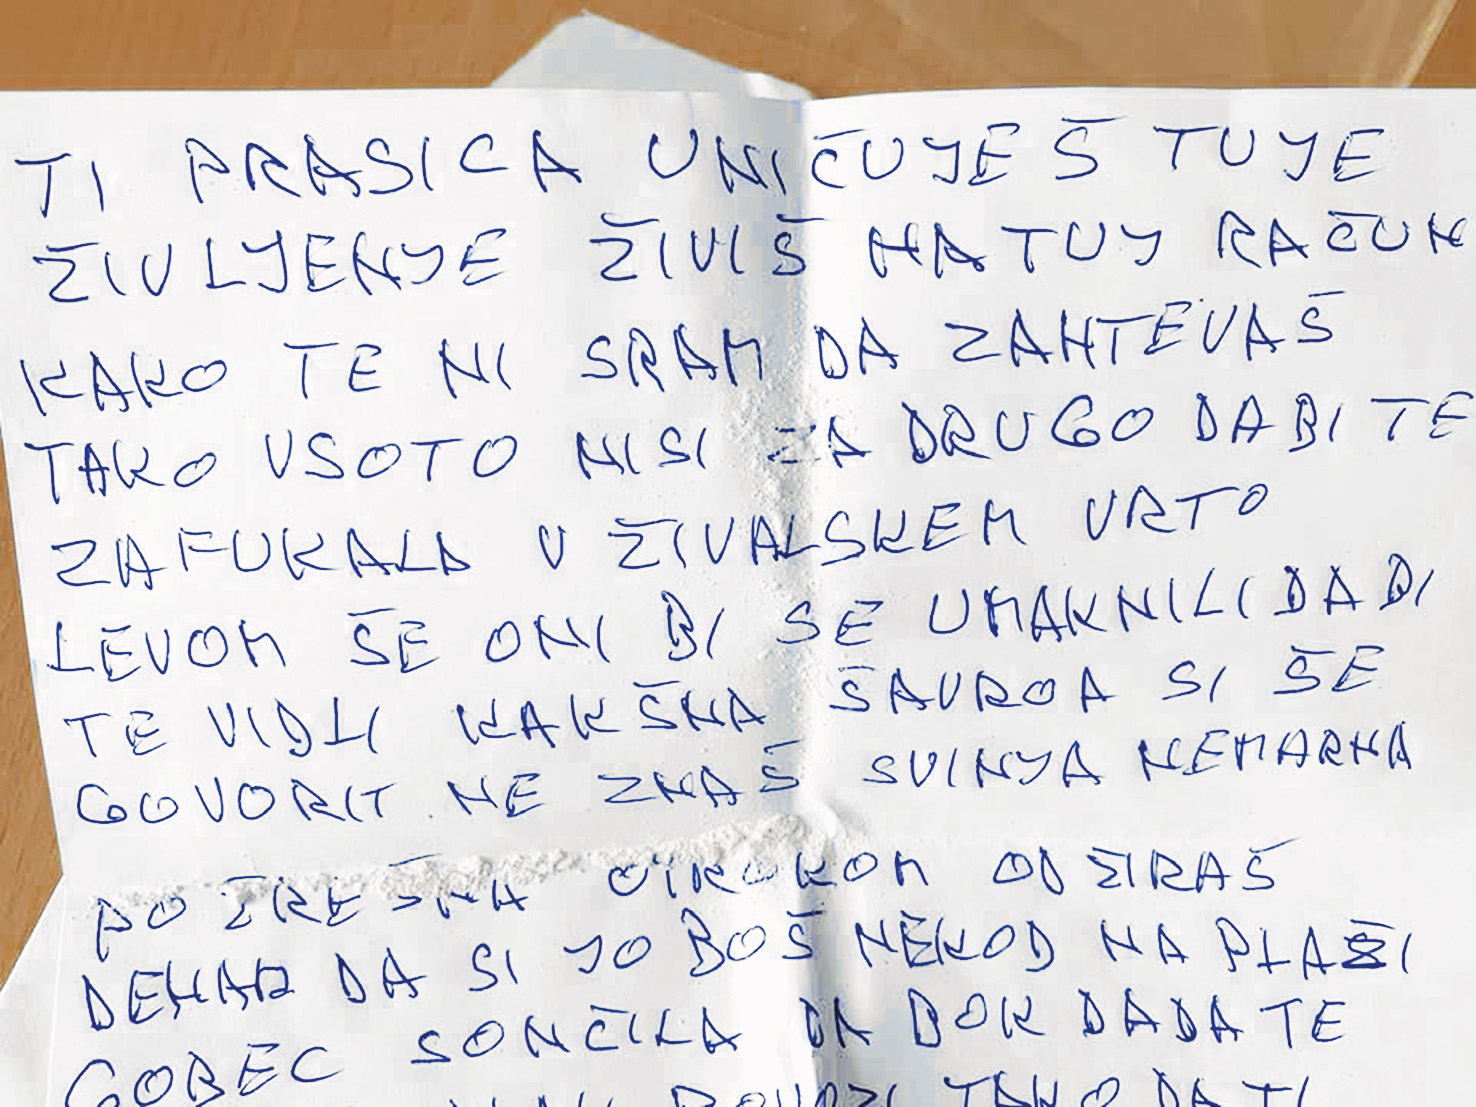 TI PRASICA UNIČUJEŠ TUJE
ŽIVLJENJE ŽIVIŠ NA TUJ RAČUN
KAKO TE NI SRAM DA ZAHTEVAŠ
TAKO VSOTO NISI ZA DRUGO DA BI TE
ZAFUKALA V ŽIVALSKEM VRTO
LEVOM ŠE ONI BI SE UMAKNILI DA BI
TE VIDLI KAKŠNA ŠAVROA SI ŠE
GOVORIT NE ZNAŠ SVINJA NEMARNA
POŽREŠNA OTROKOM ODŽIRAŠ
DENAR DA SI JO BOŠ NEKOD NA PLAŽI
GOBEC SONČILA DA BOK DA DA TE
TAKO DA TI